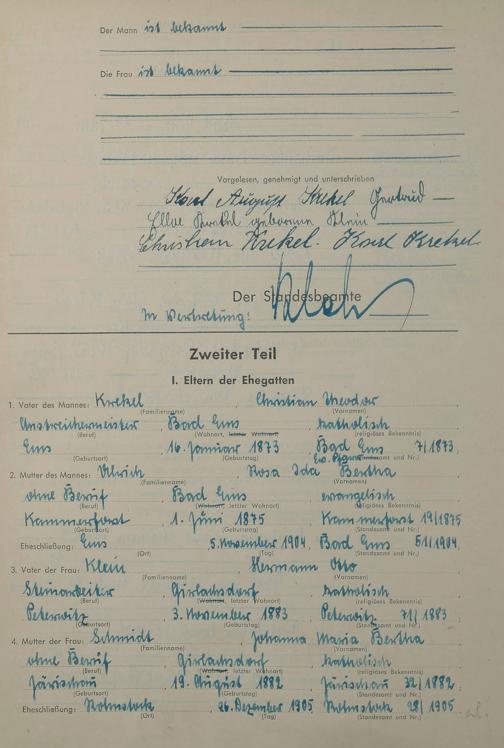 Der Mann ist bekannt
Die Frau ist bekannt
Vorgelesen, genehmigt und unterschrieben
Karl August Krekel Gertrud
Krekel geborene Klein
Christian Krekel. Karl Krekel
Der Standesbeamte
In Vertretung:
Zweiter Teil
I. Eltern der Ehegatten
1. Vater des Mannes: Krekel Christian Theodor
(Familienname) (Vornamen)
Anstreichermeister, Bad Ems katholisch
(Beruf) (Wohnort, letzter Wohnort) (religiöses Bekenntnis)
Ems 16. Januar 1873 Bad Ems 7/1873.
(Geburtsort) (Geburtstag) (Standesamt und Nr.)
2. Mutter des Mannes: Ulrich Rosa Ida Bertha
(Familienname) (Vornamen)
ohne Beruf, Bad Ems evangelisch
(Beruf) (Wohnort, letzter Wohnort) (religiöses Bekenntnis)
Kammerforst 1. Juni 1875 Kammerforst 19/1875
(Geburtsort) (Geburtstag) (Standesamt und Nr.)
Eheschließung: Ems 5. November 1904, Bad Ems 51/1904.
(Ort) (Tag) (Standesamt und Nr.)
3. Vater der Frau: Klein Hermann Otto
(Familienname) (Vornamen)
Steinarbeiter, Girlachsdorf katholisch
(Beruf) (Wohnort, letzter Wohnort) (religiöses Bekenntnis)
Peterwitz 3. November 1883 Peterwitz 71/1883
(Geburtsort) (Geburtstag) (Standesamt und Nr.)
4. Mutter der Frau: Schmidt Johanna Maria Bertha
(Familienname) (Vornamen)
ohne Beruf, Girlachsdorf katholisch
(Beruf) (Wohnort, letzter Wohnort) (religiöses Bekenntnis)
Järischau 19. August 1882 Järischau 32/1882
(Geburtsort) (Geburtstag) (Standesamt und Nr.)
Eheschließung: Rohnstock 26. Dezember 1905 Rohnstock 28/1905
(Ort) (Tag) (Standesamt und Nr.)